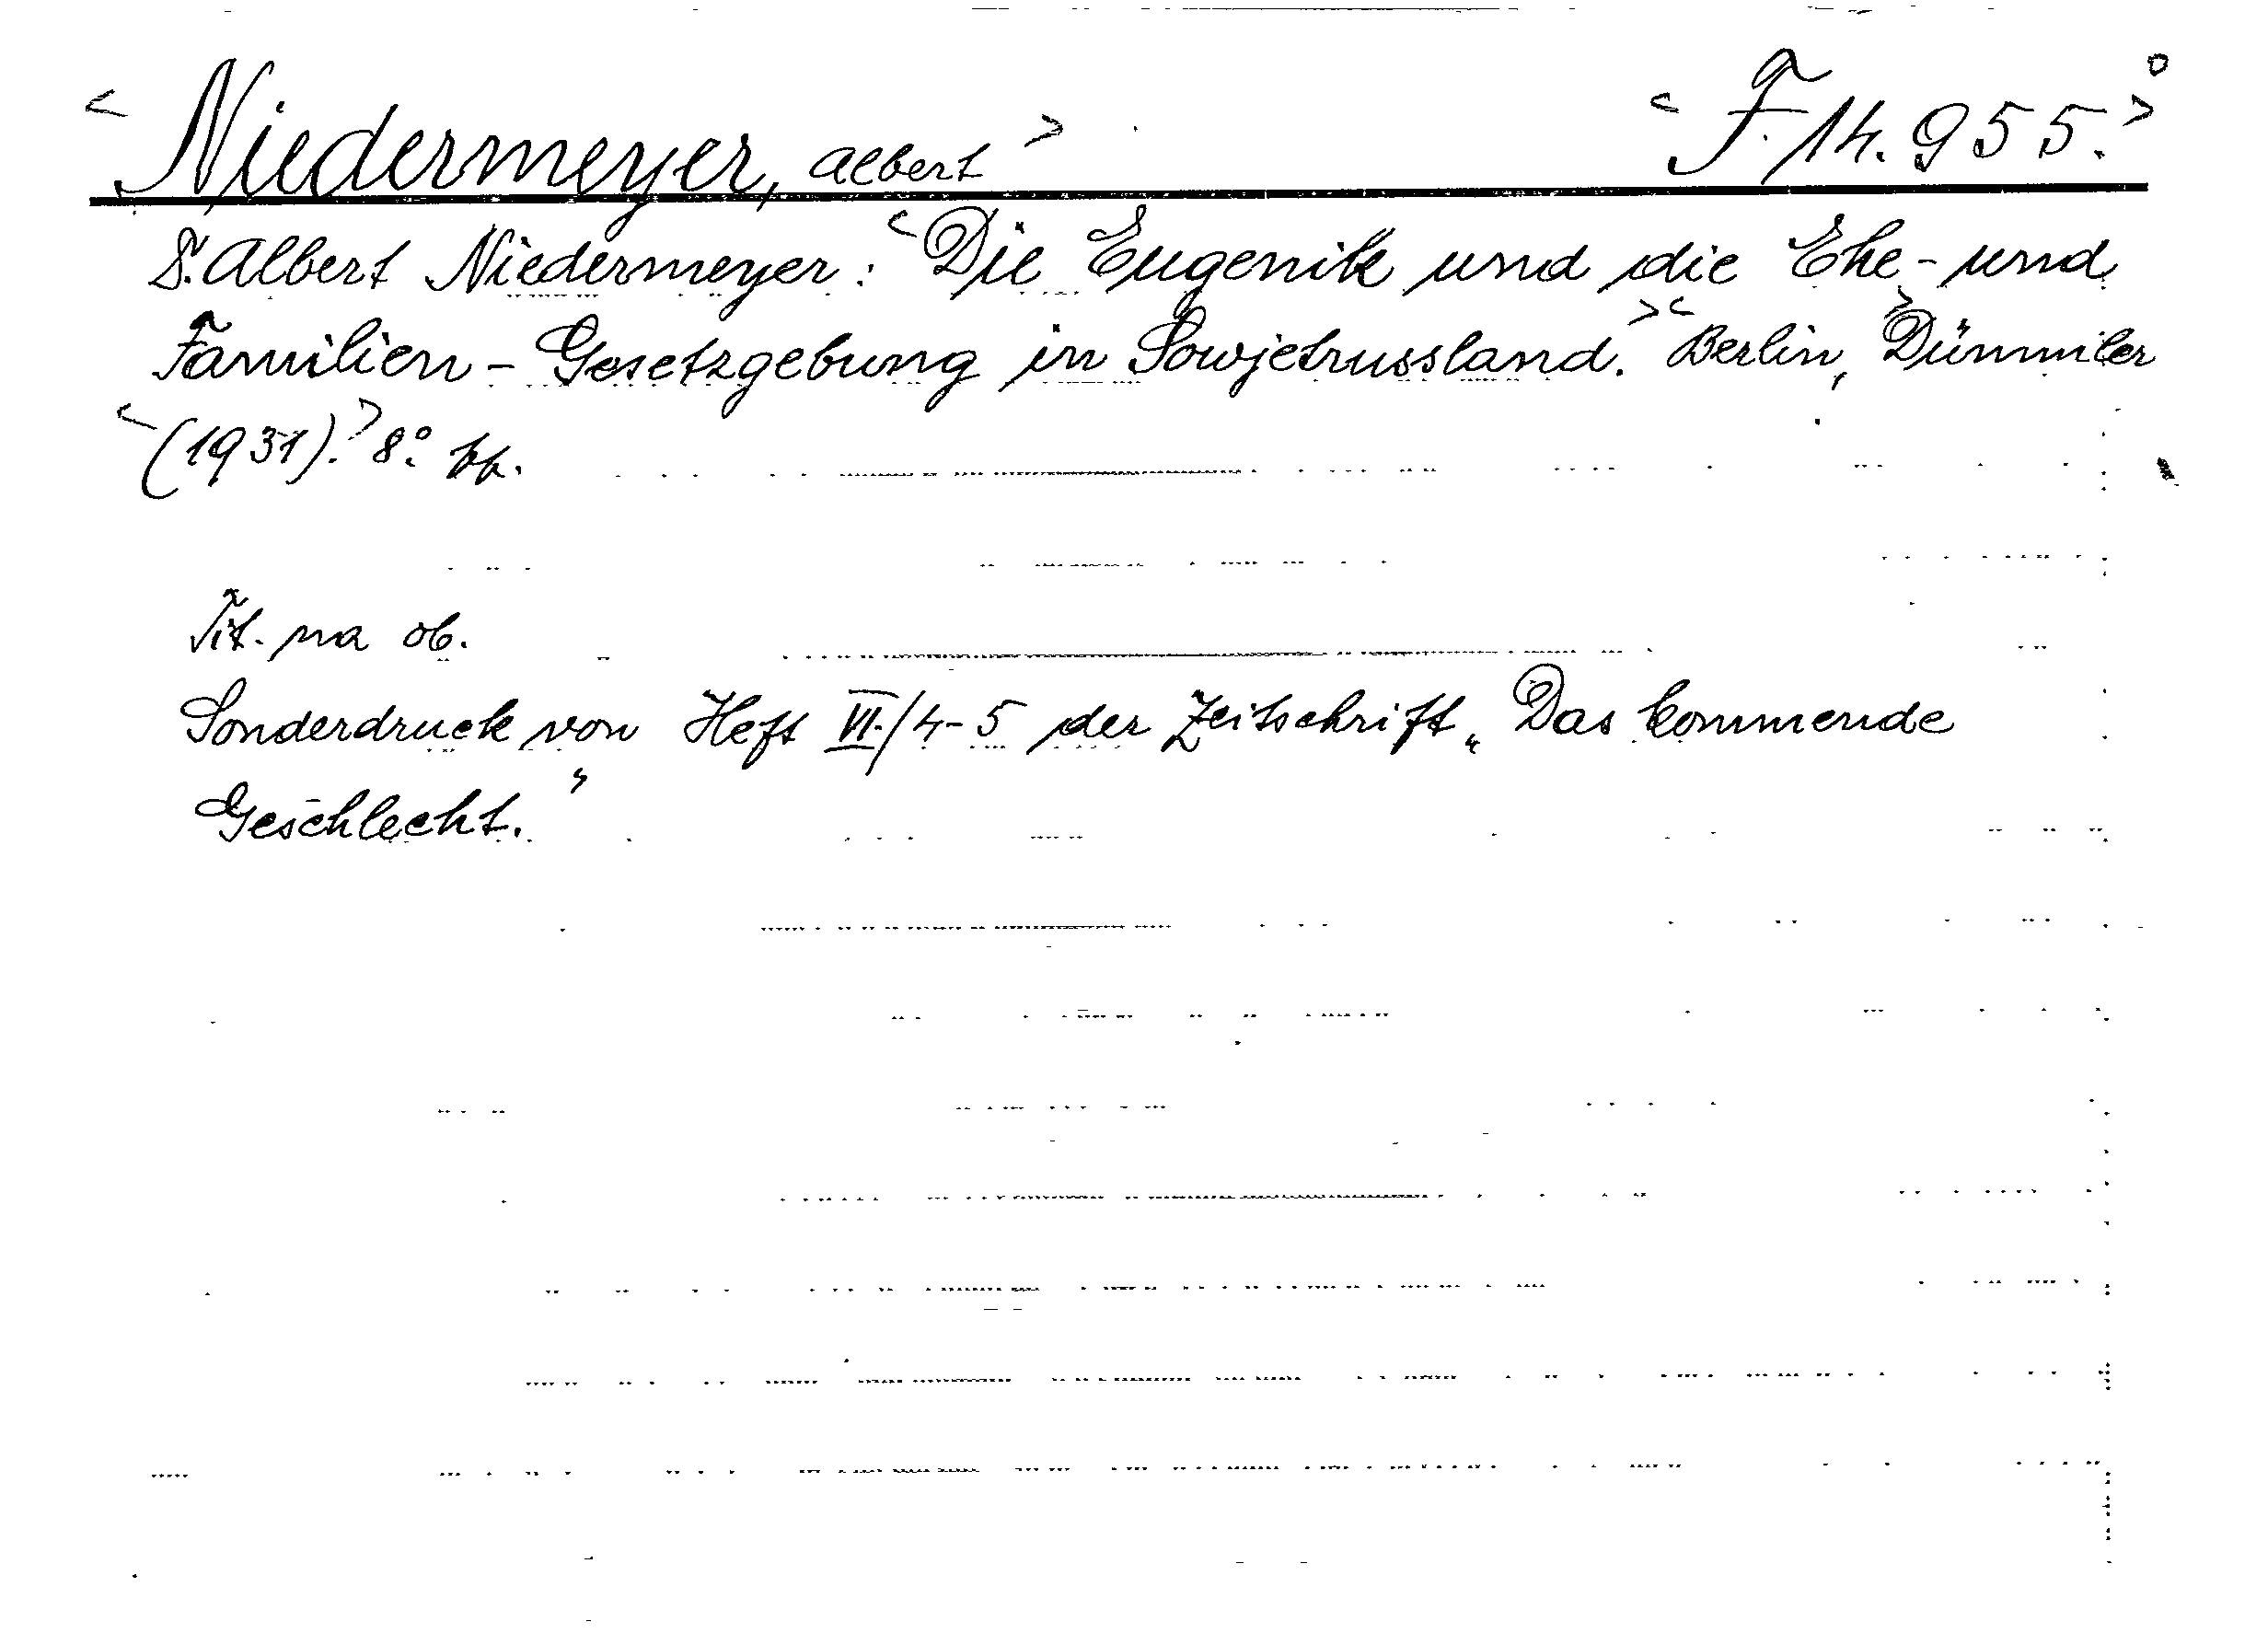 <Niedermeyer, Albert> <F.14.955.>°
D. Albert Niedermeyer: <Die Eugenik und die Ehe- und
Familien-Gesetzgebung in Sowjetrussland.> <Berlin,> Dümmler
<(1931).> 8°.
Tit. na ob.
Sonderdruck von Heft VI./4-5 der Zeitschrift „Das kommende
Geschlecht.”